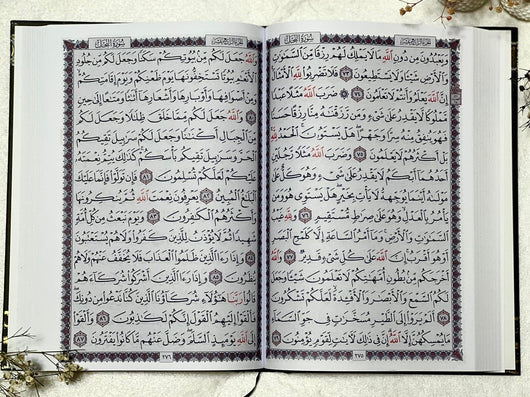 الجزء الرابع عشر
سورة النحل
وَيَعْبُدُونَ مِن دُونِ ٱللَّهِ مَا لَا يَمْلِكُ لَهُمْ رِزْقًا مِّنَ ٱلسَّمَٰوَٰتِ
وَٱلْأَرْضِ شَيْـًٔا وَلَا يَسْتَطِيعُونَ ٧٣ فَلَا تَضْرِبُوا۟ لِلَّهِ ٱلْأَمْثَالَ
إِنَّ ٱللَّهَ يَعْلَمُ وَأَنتُمْ لَا تَعْلَمُونَ ٧٤ ۞ ضَرَبَ ٱللَّهُ مَثَلًا عَبْدًا
مَّمْلُوكًا لَّا يَقْدِرُ عَلَىٰ شَىْءٍ وَمَن رَّزَقْنَٰهُ مِنَّا رِزْقًا حَسَنًا
فَهُوَ يُنفِقُ مِنْهُ سِرًّا وَجَهْرًا هَلْ يَسْتَوُۥنَ ٱلْحَمْدُ لِلَّهِ
بَلْ أَكْثَرُهُمْ لَا يَعْلَمُونَ ٧٥ وَضَرَبَ ٱللَّهُ مَثَلًا رَّجُلَيْنِ
أَحَدُهُمَآ أَبْكَمُ لَا يَقْدِرُ عَلَىٰ شَىْءٍ وَهُوَ كَلٌّ عَلَىٰ
مَوْلَىٰهُ أَيْنَمَا يُوَجِّههُّ لَا يَأْتِ بِخَيْرٍ هَلْ يَسْتَوِى هُوَ وَمَن
يَأْمُرُ بِٱلْعَدْلِ وَهُوَ عَلَىٰ صِرَٰطٍ مُّسْتَقِيمٍ ٧٦ وَلِلَّهِ غَيْبُ
ٱلسَّمَٰوَٰتِ وَٱلْأَرْضِ وَمَآ أَمْرُ ٱلسَّاعَةِ إِلَّا كَلَمْحِ ٱلْبَصَرِ
أَوْ هُوَ أَقْرَبُ إِنَّ ٱللَّهَ عَلَىٰ كُلِّ شَىْءٍ قَدِيرٌ ٧٧ وَٱللَّهُ
أَخْرَجَكُم مِّنۢ بُطُونِ أُمَّهَٰتِكُمْ لَا تَعْلَمُونَ شَيْـًٔا وَجَعَلَ
لَكُمُ ٱلسَّمْعَ وَٱلْأَبْصَٰرَ وَٱلْأَفْـِٔدَةَ لَعَلَّكُمْ تَشْكُرُونَ ٧٨
أَلَمْ يَرَوْا۟ إِلَى ٱلطَّيْرِ مُسَخَّرَٰتٍ فِى جَوِّ ٱلسَّمَآءِ
مَا يُمْسِكُهُنَّ إِلَّا ٱللَّهُ إِنَّ فِى ذَٰلِكَ لَءَايَٰتٍ لِّقَوْمٍ يُؤْمِنُونَ ٧٩
٢٧٥
الجزء الرابع عشر
سورة النحل
وَٱللَّهُ جَعَلَ لَكُم مِّنۢ بُيُوتِكُمْ سَكَنًا وَجَعَلَ لَكُم مِّن جُلُودِ
ٱلْأَنْعَٰمِ بُيُوتًا تَسْتَخِفُّونَهَا يَوْمَ ظَعْنِكُمْ وَيَوْمَ إِقَامَتِكُمْ
وَمِنْ أَصْوَافِهَا وَأَوْبَارِهَا وَأَشْعَارِهَآ أَثَٰثًا وَمَتَٰعًا إِلَىٰ حِينٍ
٨٠ وَٱللَّهُ جَعَلَ لَكُم مِّمَّا خَلَقَ ظِلَٰلًا وَجَعَلَ لَكُم
مِّنَ ٱلْجِبَالِ أَكْنَٰنًا وَجَعَلَ لَكُمْ سَرَٰبِيلَ تَقِيكُمُ
ٱلْحَرَّ وَسَرَٰبِيلَ تَقِيكُم بَأْسَكُمْ كَذَٰلِكَ يُتِمُّ نِعْمَتَهُۥ
عَلَيْكُمْ لَعَلَّكُمْ تُسْلِمُونَ ٨١ فَإِن تَوَلَّوْا۟ فَإِنَّمَا عَلَيْكَ
ٱلْبَلَٰغُ ٱلْمُبِينُ ٨٢ يَعْرِفُونَ نِعْمَتَ ٱللَّهِ ثُمَّ يُنكِرُونَهَا
وَأَكْثَرُهُمُ ٱلْكَٰفِرُونَ ٨٣ وَيَوْمَ نَبْعَثُ مِن كُلِّ أُمَّةٍ
شَهِيدًا ثُمَّ لَا يُؤْذَنُ لِلَّذِينَ كَفَرُوا۟ وَلَا هُمْ يُسْتَعْتَبُونَ
٨٤ وَإِذَا رَءَا ٱلَّذِينَ ظَلَمُوا۟ ٱلْعَذَابَ فَلَا يُخَفَّفُ عَنْهُمْ وَلَا هُمْ
يُنظَرُونَ ٨٥ وَإِذَا رَءَا ٱلَّذِينَ أَشْرَكُوا۟ شُرَكَآءَهُمْ
قَالُوا۟ رَبَّنَا هَٰٓؤُلَآءِ شُرَكَآؤُنَا ٱلَّذِينَ كُنَّا نَدْعُوا۟ مِن دُونِكَ
فَأَلْقَوْا۟ إِلَيْهِمُ ٱلْقَوْلَ إِنَّكُمْ لَكَٰذِبُونَ ٨٦ وَأَلْقَوْا۟
إِلَى ٱللَّهِ يَوْمَئِذٍ ٱلسَّلَمَ وَضَلَّ عَنْهُم مَّا كَانُوا۟ يَفْتَرُونَ ٨٧
٢٧٦